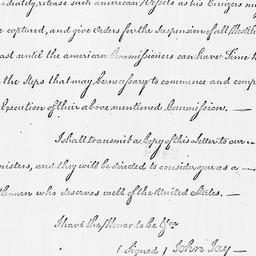 mediately release such american Vessels as his Cruizers m
e captured, and give Orders for the Suspension of all Hostili
east until the american Commissioners can have Time t
the Steps that may be necessary to commence and comp
Execution of their above mentioned Commission. —
I shall transmit a Copy of this Letter to our —
inisters, and they will be directed to consider you as a —
tleman who deserves well of the United States. —
I have the Honor to be &ca
( Signed ) John Jay —